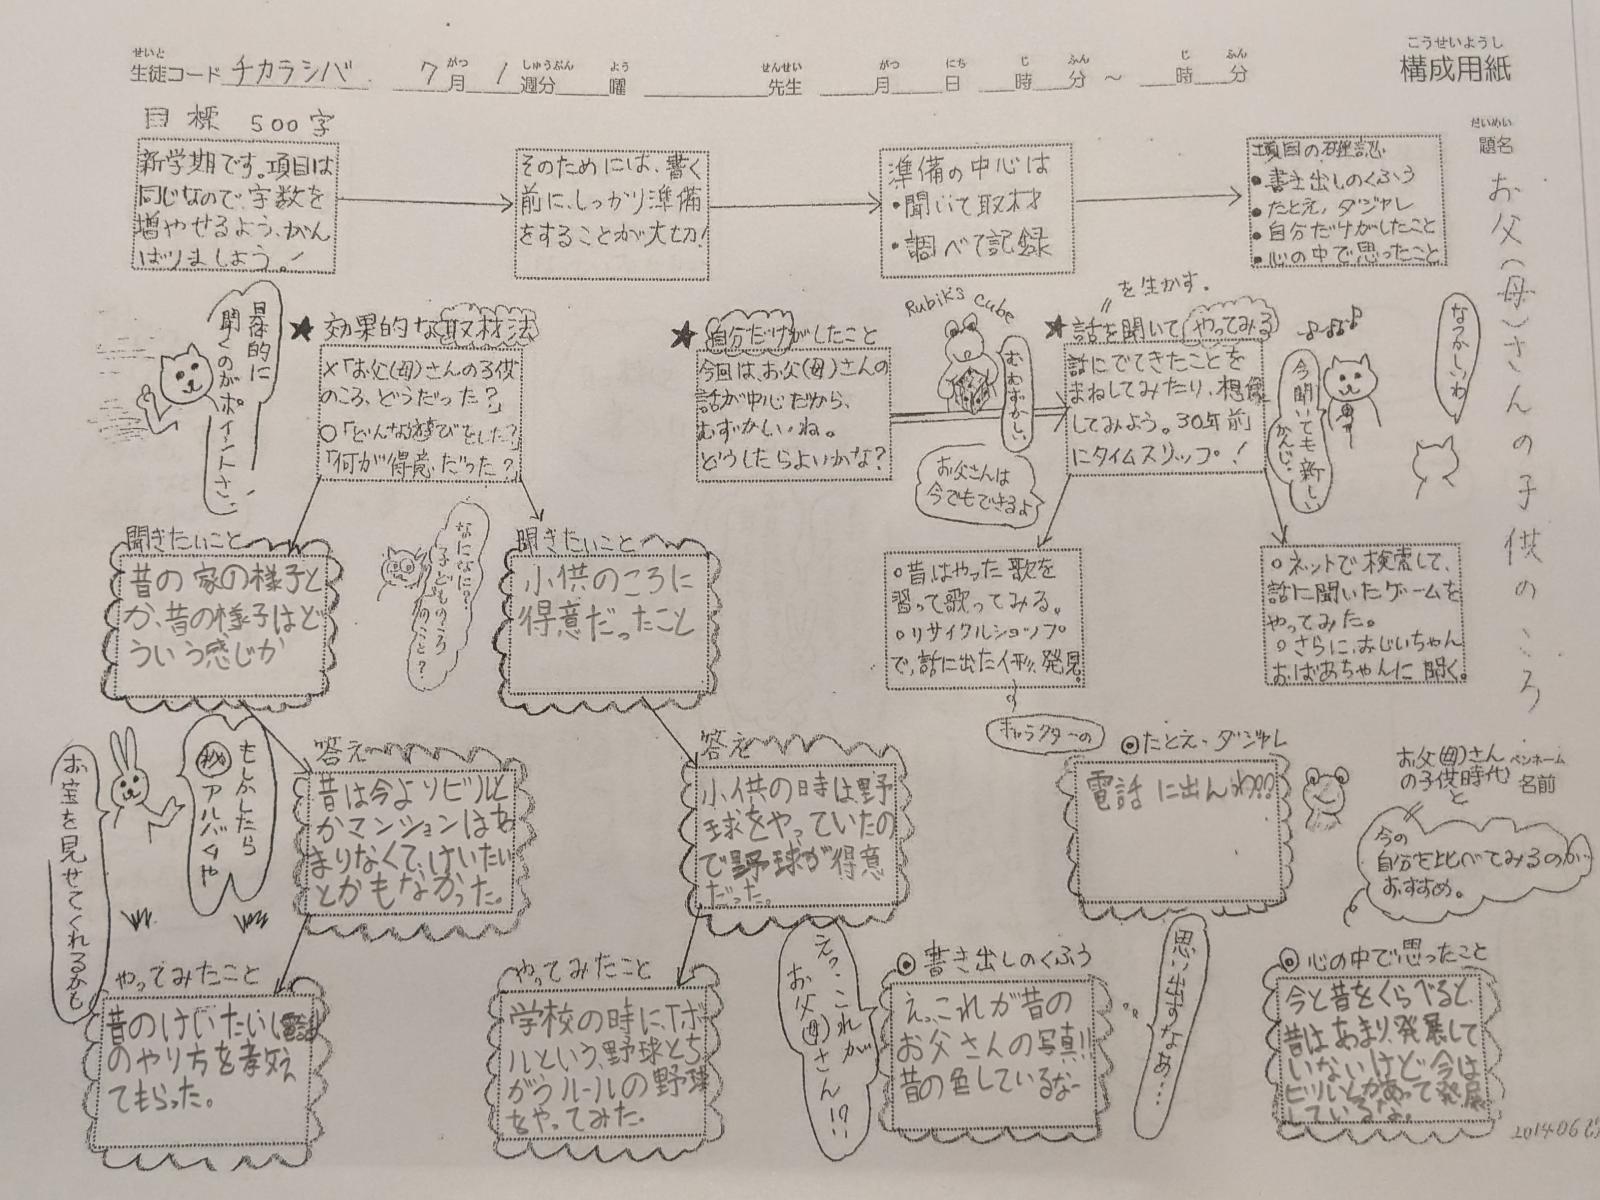 せいと
生徒コード チカラシバ 7月 1週分 曜 先生 月 日 時 分 ～ 時 分
がつ しゅうぶん よう せんせい がつ にち じ ふん じ ふん
こうせいようし
構成用紙
だいめい
題名
お父(母)さんの子供のころ
目標 500字
新学期です。項目は
同じなので、字数を
増やせるよう、がん
ばりましょう。!
そのためには、書く
前に、しっかり準備
をすることが大切!
準備の中心は
・聞いて取材
・調べて記録
項目の確認
●書き出しのくふう
●たとえ、ダジャレ
●自分だけがしたこと
●心の中で思ったこと
具体的に
聞くのがポイントさ。
★効果的な取材法
×「お父(母)さんの子供
のころ、どうだった?」
○「どんな遊びをした?」
「何が得意だった?」
★自分だけがしたこと
今回は、お父(母)さんの
話が中心だから、
むずかしいね。
どうしたらよいかな?
Rubik's Cube
むむずかしい
お父さんは
今でもできるよ
〃を生かす。
★話を聞いてやってみる
話にでてきたことを
まねしてみたり、想像
してみよう。30年前
にタイムスリップ!
今聞いても新しい
かんじ。
なつかしいわ
聞きたいこと
昔の家の様子と
か、昔の様子はど
ういう感じか
なになに?
子どものころ
のこと?
聞きたいこと
小供のころに
得意だったこと
○昔はやった歌を
習って歌ってみる。
○リサイクルショップ
で、話に出た人形、発見。
キャラクターの
○ネットで検索して、
話に聞いたゲームを
やってみた。
○さらに、おじいちゃん
おばあちゃんに聞く。
もしかしたら
㊙アルバムや
お宝を見せてくれるかも
答え
昔は今よりビルと
かマンションはあ
まりなくて、けいたい
とかもなかった。
答え
小供の時は、野
球をやっていたの
で野球が得意
だった。
◎たとえ・ダジャレ
電話に出んわ???
お父(母)さん
の子供時代と
ペンネーム
名前
今の
自分を比べてみるのが
おすすめ。
やってみたこと
昔のけいたい電話
のやり方を教え
てもらった。
やってみたこと
学校の時に、Tボー
ルという、野球とち
がうルールの野球
をやってみた。
えっ、これが
お父(母)さん!?
◎書き出しのくふう
えっ、これが昔の
お父さんの写真!!
昔の色しているな-
思い出すなあ…
◎心の中で思ったこと
今と昔をくらべると、
昔はあまり、発展して
いないけど、今は
ビルとかあって発展
しているな。
2014.06